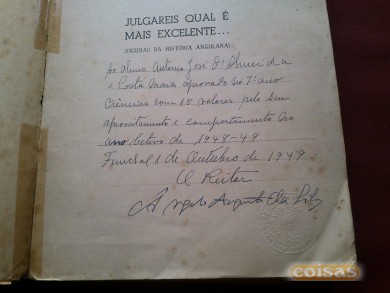 JULGAREIS QUAL É
MAIS EXCELENTE...
(FIGURAS DA HISTÓRIA ANGRANA)
Ao aluno António José d'Almeida
e Costa aprovado no 7º ano
Ciências com 15 valores pelo seu
aproveitamento e comportamento no
ano lectivo de 1948-49
Funchal 1 de Outubro de 1949
O Reitor
Angelo Augusto da Silva
coisas